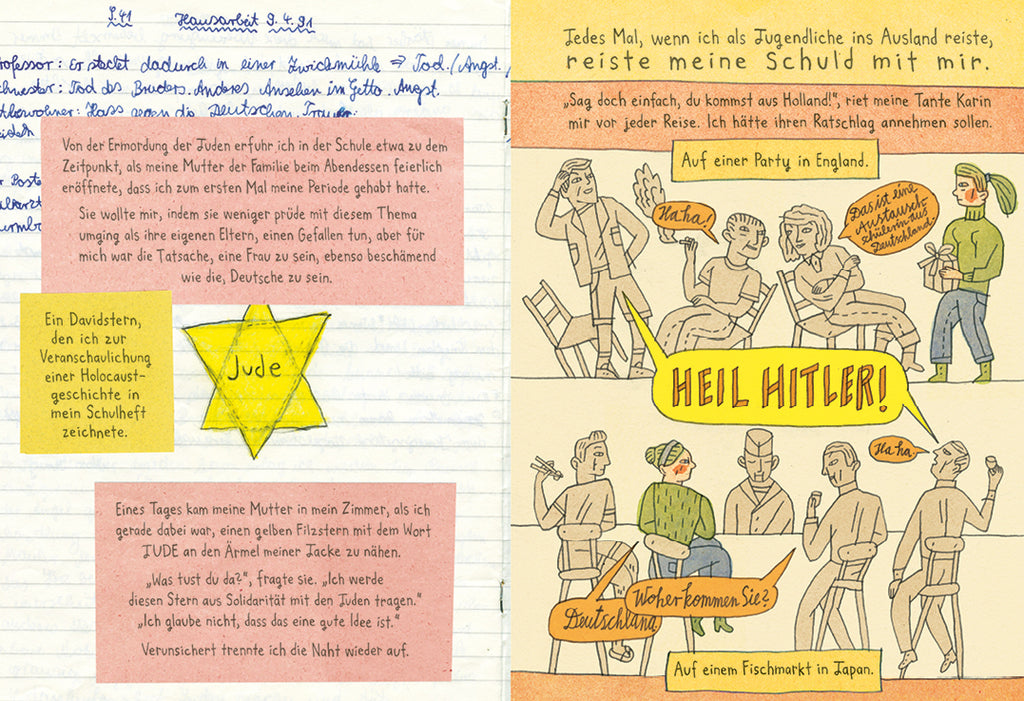 S.41 Hausarbeit 9.4.91
rofessor: Er steckt dadurch in einer Zwickmühle ⇒ Tod./Angst.
chwester: Tod des Bruders. Anderes Ansehen im Getto. Angst.
ttbewohner: Hass gegen die Deutschen. Trauer.
Von der Ermordung der Juden erfuhr ich in der Schule etwa zu dem
Zeitpunkt, als meine Mutter der Familie beim Abendessen feierlich
eröffnete, dass ich zum ersten Mal meine Periode gehabt hatte.
Sie wollte mir, indem sie weniger prüde mit diesem Thema
umging als ihre eigenen Eltern, einen Gefallen tun, aber für
mich war die Tatsache, eine Frau zu sein, ebenso beschämend
wie die, Deutsche zu sein.
Ein Davidstern,
den ich zur
Veranschaulichung
einer Holocaust-
geschichte in
mein Schulheft
zeichnete.
Jude
Eines Tages kam meine Mutter in mein Zimmer, als ich
gerade dabei war, einen gelben Filzstern mit dem Wort
JUDE an den Ärmel meiner Jacke zu nähen.
„Was tust du da?“, fragte sie. „Ich werde
diesen Stern aus Solidarität mit den Juden tragen.“
„Ich glaube nicht, dass das eine gute Idee ist.“
Verunsichert trennte ich die Naht wieder auf.
Jedes Mal, wenn ich als Jugendliche ins Ausland reiste,
reiste meine Schuld mit mir.
„Sag doch einfach, du kommst aus Holland!“, riet meine Tante Karin
mir vor jeder Reise. Ich hätte ihren Ratschlag annehmen sollen.
Auf einer Party in England.
Ha ha!
Das ist eine
Austausch-
schülerin aus
Deutschland.
HEIL HITLER!
Ha ha.
Woher kommen Sie?
Deutschland.
Auf einem Fischmarkt in Japan.